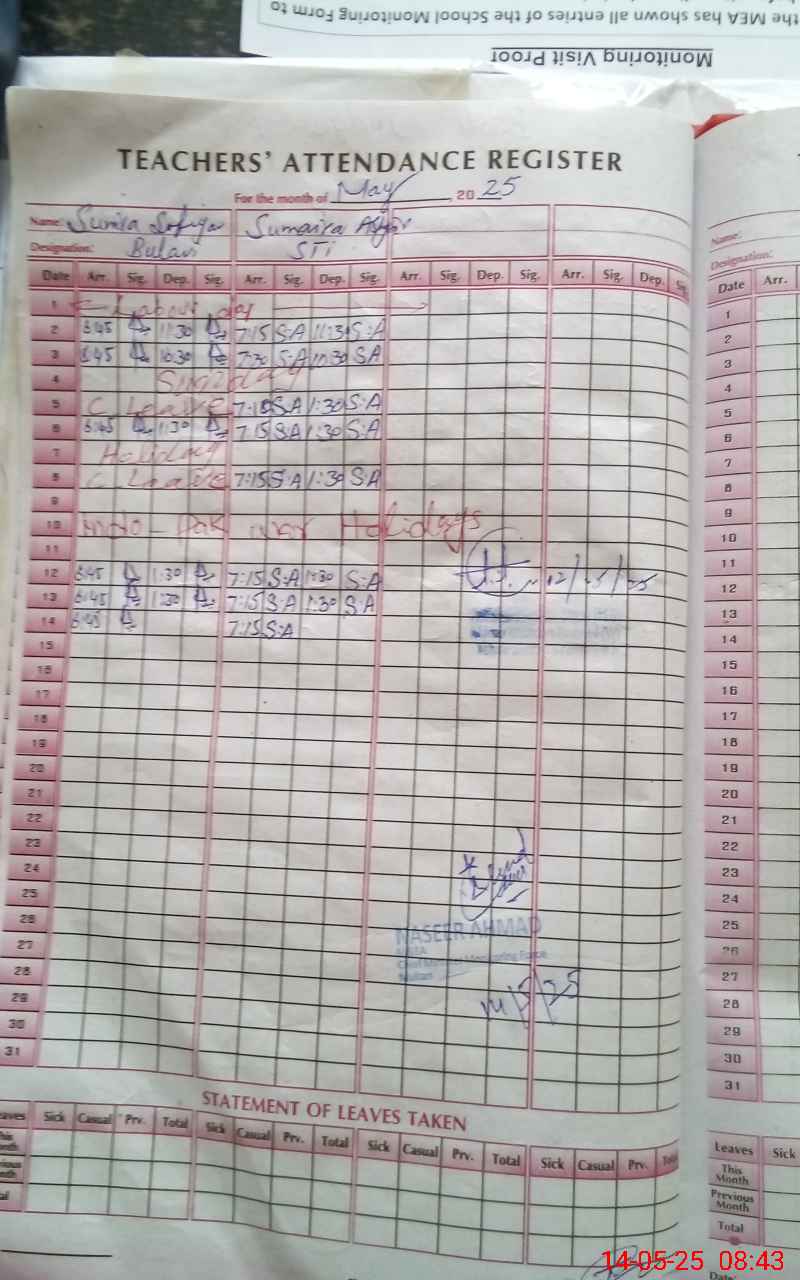 the MEA has shown all entries of the School Monitoring Form to
Monitoring Visit Proof
TEACHERS' ATTENDANCE REGISTER
For the month of May, 2025
Name: Sumaira
Designation: STI
Date Arr. Sig. Dep. Sig. Arr. Sig. Dep. Sig. Arr. Sig. Dep. Sig. Arr. Sig. Dep. Sig.
1 Labour day
2 6:45 11:30 7:15 S.A 11:30 S.A
3 6:45 10:30 7:30 S.A 10:30 SA
4 Sunday
5 C Leave 7:15 S.A 1:30 S.A
6 6:45 1:30 7:15 S.A 1:30 S.A
7 Holiday
8 C Leave 7:15 S.A 1:30 S.A
9
10 Indo-Pak war Holidays
11
12 6:45 1:30 7:15 S.A 1:30 S.A 12/5/25
13 6:45 1:30 7:15 S.A 1:30 S.A
14 6:45 7:15 S.A
15
16
17
18
19
20
21
22
23
24
25
26
NASEER AHMAD
27
Chief Minister Monitoring Force
28
14/5/25
29
30
31
STATEMENT OF LEAVES TAKEN
Sick Casual Prv. Total Sick Casual Prv. Total Sick Casual Prv. Total Sick Casual Prv.
Name:
Designation:
Date Arr.
1
2
3
4
5
6
7
8
9
10
11
12
13
14
15
16
17
18
19
20
21
22
23
24
25
26
27
28
29
30
31
Leaves Sick
This Month
Previous Month
Total
14-05-25 08:43